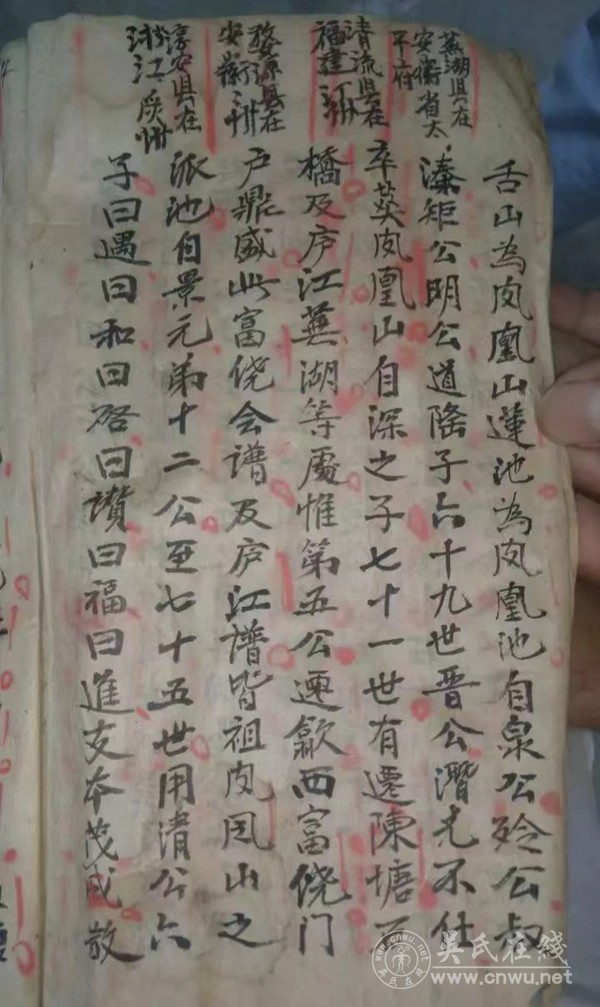 蕪湖县在
安徽省太
平府
清流县在
福建汀州
婺源县在
安徽
淳安县在
浙江严州
舌山為凤凰山蓮池為凤凰池自泉公殮公叔
溱矩公明公道隆子六十九世晋公潛光不仕
卒葵凤凰山自深之子七十一世有遷陳塘
橋及庐江蕪湖等處惟第五公運歙西富侥门
户鼎盛此富侥会谱及庐江譜皆祖凤凰山之
派池自景元弟十二公至七十五世用清公六
子曰遇曰和曰啓曰讚曰福曰進支本茂成敖
吴氏在线
www.cnwu.net